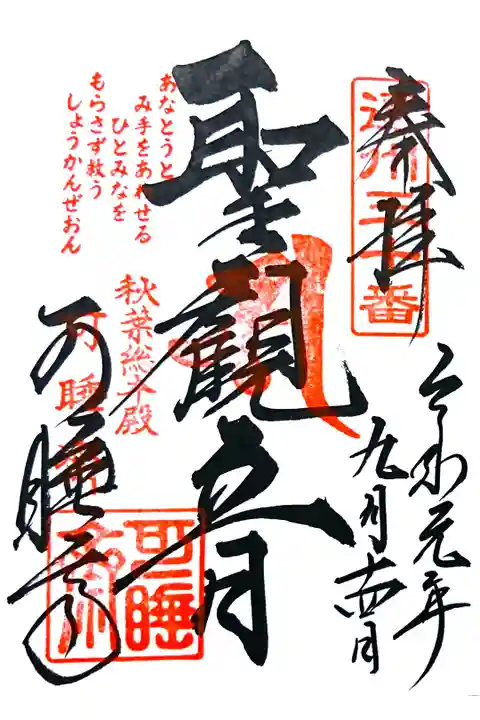 奉拝
遠州三十三番
令和元年
九月十四日
聖観世音
あなとうと
み手をあわせる
ひとみなを
もらさず救う
しょうかんぜおん
秋葉総本殿
可睡斎
可睡斎
可睡斎